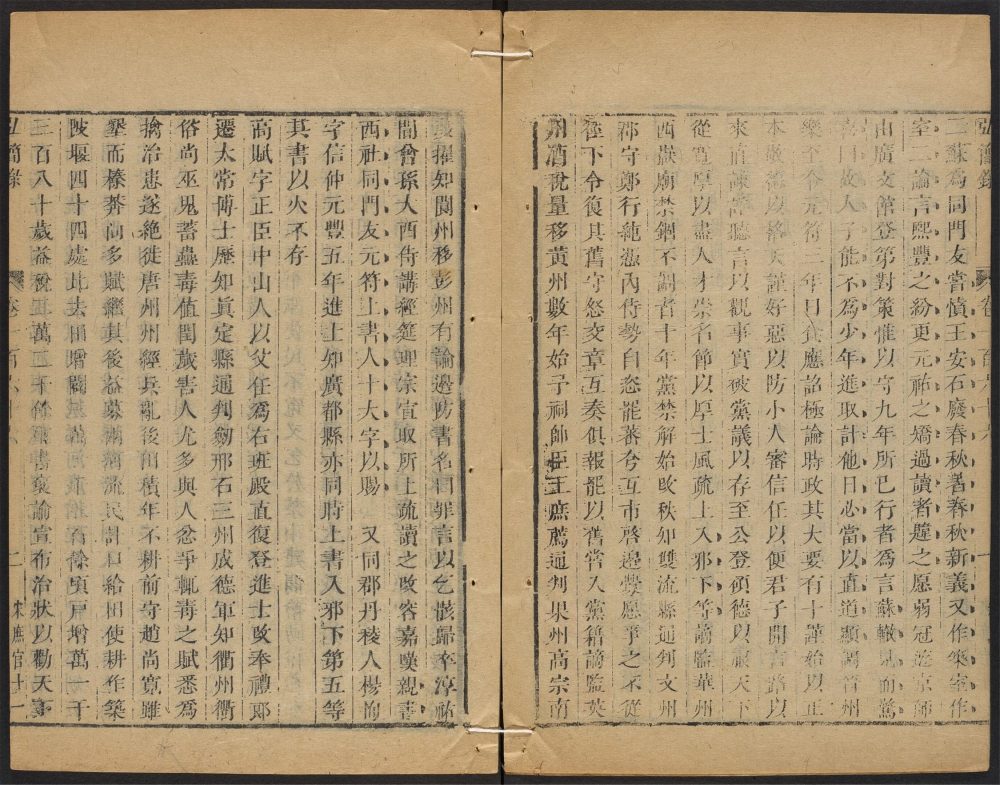 弘簡錄 卷一百六十六
二蘇為同門友嘗憤王安石廢春秋著春秋新義又作樂室作
室二論言熙豐之紛更元祐之矯過讀者韙之愿弱冠遊京師
由廣文館登第對策惟以守九年所已行者為言蘇轍見而驚
喜曰故人了能不為少年進取計他日必當以直道顯調晉州
樂至令元符二年日食應詔極論時政其大要有十謹始以正
本敬德以格天謹好惡以防小人審信任以便君子開言路以
來直諫詳聽言以觀事實破黨議以存至公登碩德以服天下
從寬厚以盡人才崇名節以厚士風疏上入邪下等謫監華州
西嶽廟禁錮不調者十年黨禁解始改秩知雙流縣通判文州
郡守鄭行純憑內侍勢自恣罷蕃兮互市啓邊釁愿爭之不從
徑下令復其舊守怒交章互奏俱報罷以舊嘗入黨籍謫監英
州酒稅量移黃州數年始予祠帥臣王庶薦通判果州高宗南
擢知閬州移彭州有論邊防書名曰罪言以乞骸歸卒淳祐
間曾孫大酉侍講經筵理宗宣取所上疏讀之改容嘉嘆親書
西社同門友元符上書人十大字以賜 又同郡丹稜人楊恂
字信仲元豐五年進士知廣都縣亦同時上書入邪下第五等
其書以火不存
高賦字正臣中山人以父任為右班殿直復登進士改奉禮郎
遷太常博士歷知真定縣通判劒邢石三州成德軍知衢州衢
俗尚巫鬼蓄蠱毒值閏歲害人尤多與人忿爭輒毒之賦悉為
擒治患遂絕徙唐州州經兵亂後田積年不耕前守趙尚寬雖
墾而榛莽尚多賦繼其後益募兩河流民計口給田使耕作築
陂堰四十四處比去田增闢三萬一千三百餘頃戶增萬一千
三百八十歲益稅二萬二千餘璽書褒諭宣布治狀以勸天下
弘簡錄 卷一百六十六 二 宋庶官十一